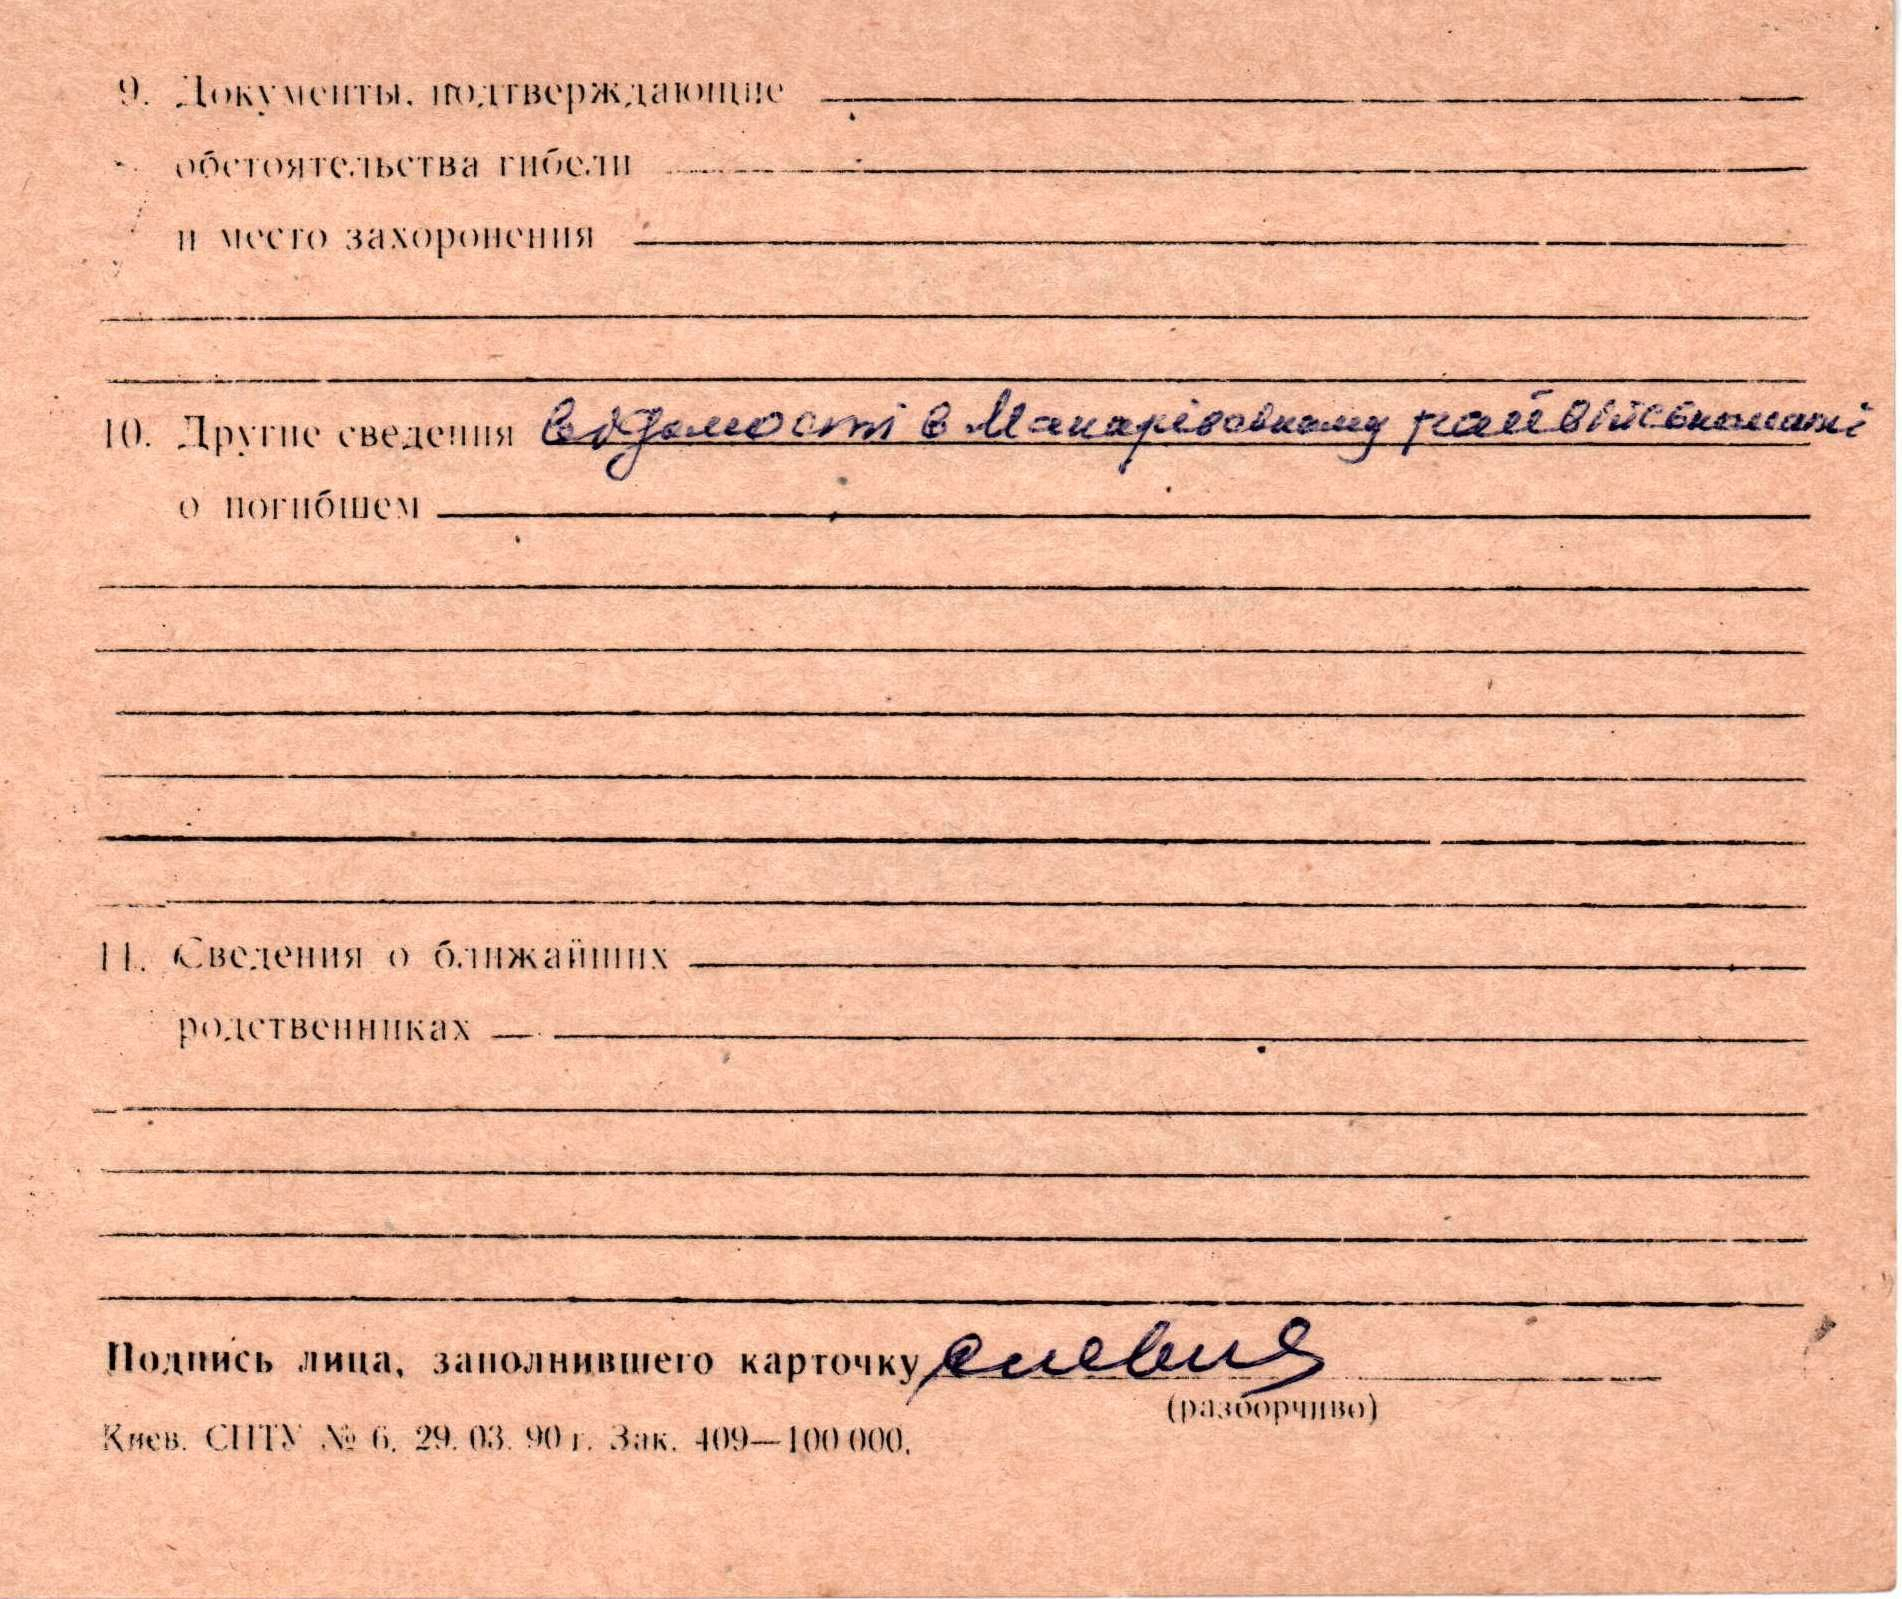 9. Документы, подтверждающие
обстоятельства гибели
и место захоронения
10. Другие сведения відомості в Макарівському райвійськоматі
о погибшем
11. Сведения о ближайших
родственниках
Подпись лица, заполнившего карточку
(разборчиво)
Киев. СПТУ № 6. 29. 03. 90 г. Зак. 409—100 000.